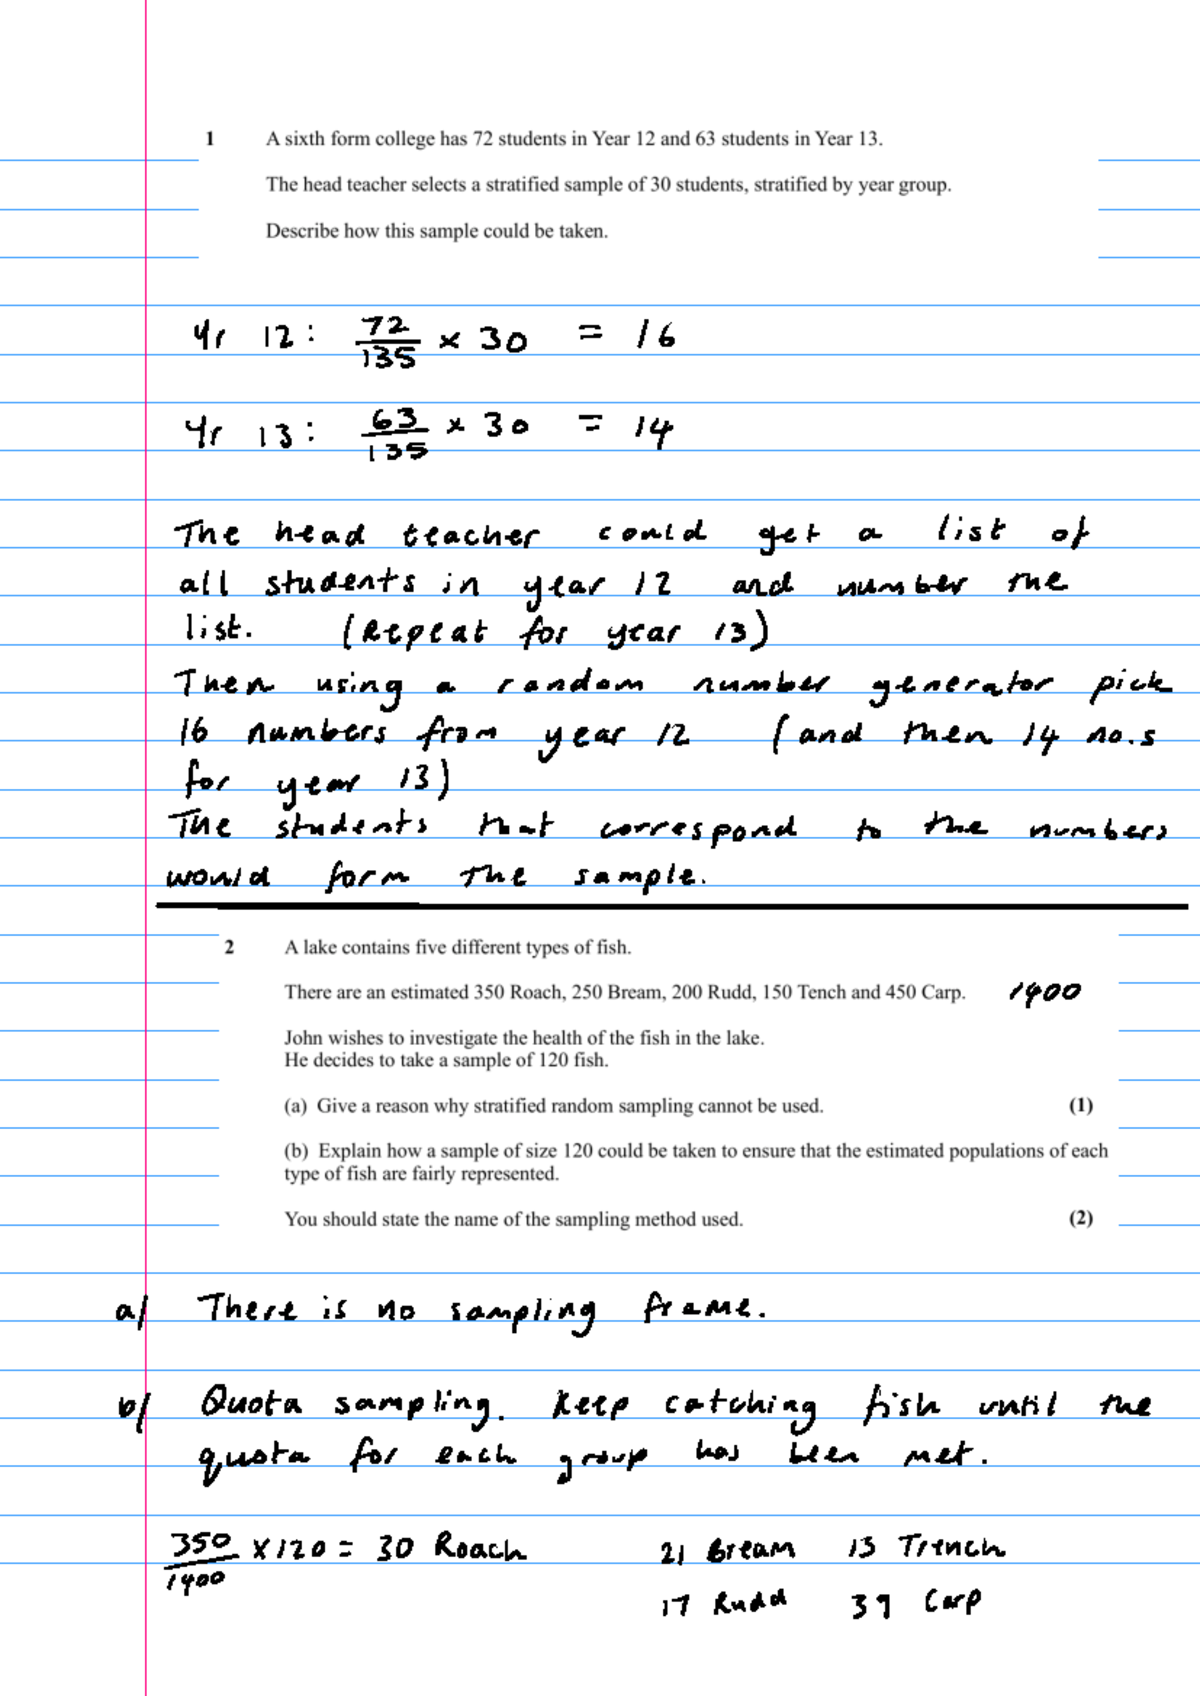 1 A sixth form college has 72 students in Year 12 and 63 students in Year 13.
The head teacher selects a stratified sample of 30 students, stratified by year group.
Describe how this sample could be taken.
Yr 12: 72/135 × 30 = 16
Yr 13: 63/135 × 30 = 14
The head teacher could get a list of
all students in year 12 and number the
list. (Repeat for year 13)
Then using a random number generator pick
16 numbers from year 12 (and then 14 no.s
for year 13)
The students that correspond to the numbers
would form the sample.
2 A lake contains five different types of fish.
There are an estimated 350 Roach, 250 Bream, 200 Rudd, 150 Tench and 450 Carp. 1400
John wishes to investigate the health of the fish in the lake.
He decides to take a sample of 120 fish.
(a) Give a reason why stratified random sampling cannot be used. (1)
(b) Explain how a sample of size 120 could be taken to ensure that the estimated populations of each
type of fish are fairly represented.
You should state the name of the sampling method used. (2)
a/ There is no sampling frame.
b/ Quota sampling. Keep catching fish until the
quota for each group has been met.
350/1400 × 120 = 30 Roach 21 Bream 13 Trench
17 Rudd 39 Carp